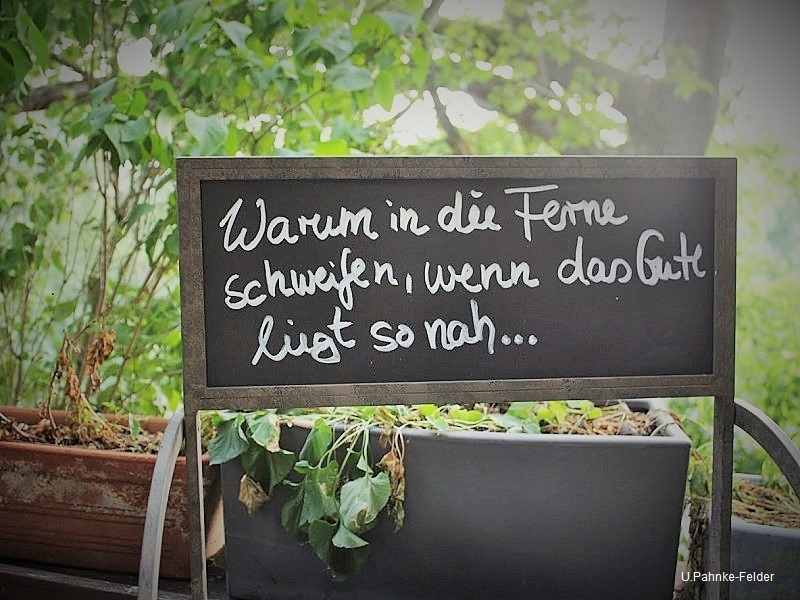 Warum in die Ferne
schweifen, wenn das Gute
liegt so nah...
U.Pahnke-Felder